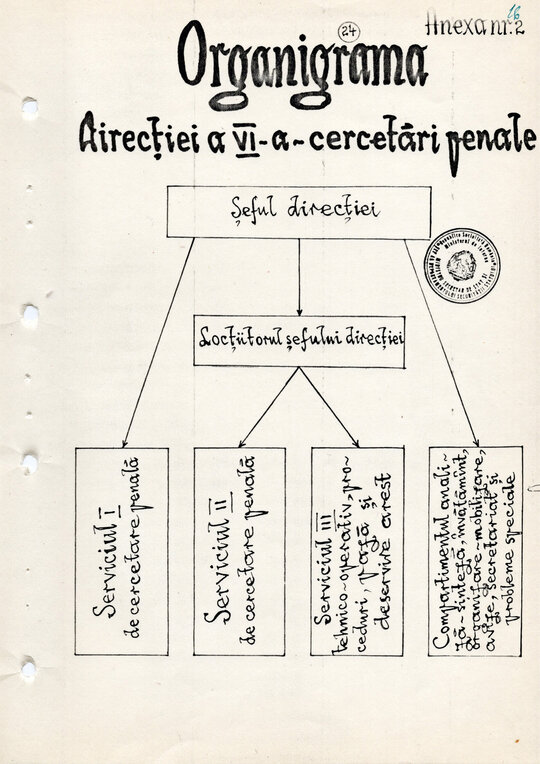 16
Anexa nr. 2
24
Organigrama
Direcției a VI-a-cercetări penale
Șeful direcției
Locțiitorul șefului direcției
Serviciul I
de cercetare penală
Serviciul II
de cercetare penală
Serviciul III
tehnico-operativ, pro-
ceduri, pază și
deservire arest
Compartimentul anali-
ză-sinteză, învățămînt,
organizare-mobilizare,
avize, secretariat și
probleme speciale